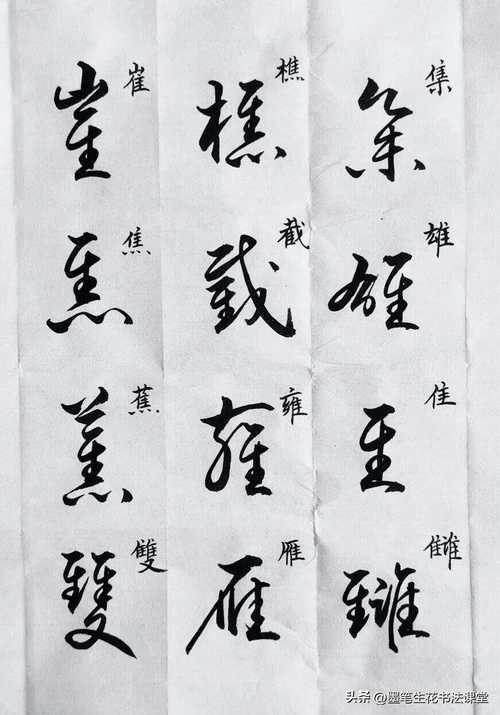 集 集
雄 雄
隹 隹
雔 雔
樵 樵
截 截
雍 雍
雁 雁
崔 崔
焦 焦
蕉 蕉
雙 雙
头条 @墨笔生花书法课堂